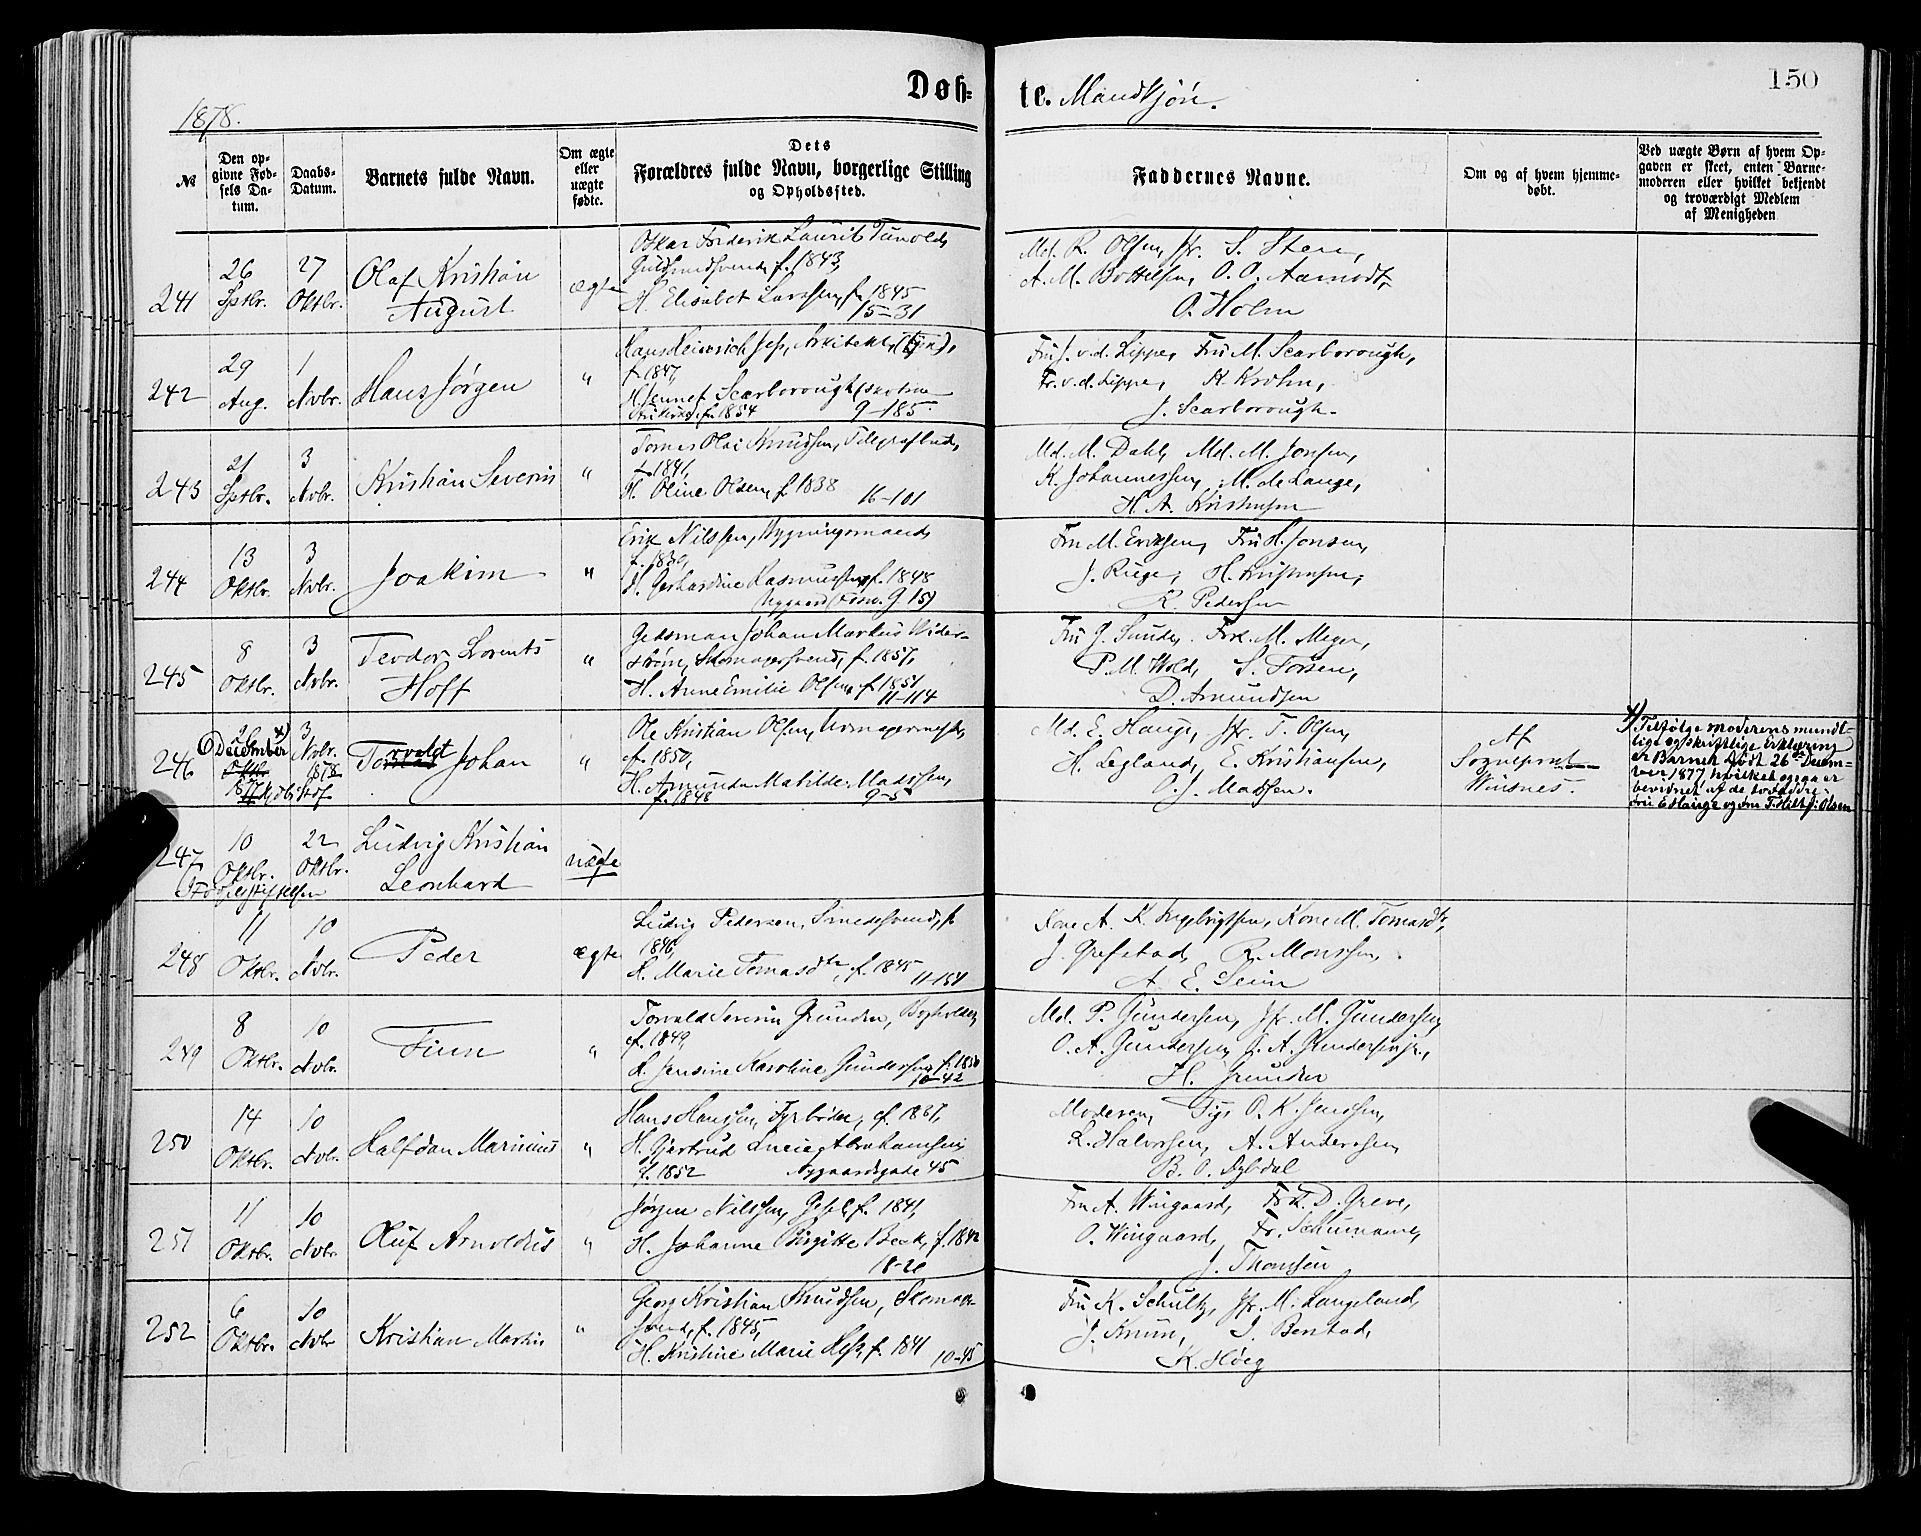 Døb-
te. Mandkjøn.
150
1878.
№
Den op-
givne Fød-
sels Da-
tum.
Daabs-
Datum.
Barnets fulde Navn.
Om ægte
eller
uægte
fødte.
Dets
Forældres fulde Navn, borgerlige Stilling
og Opholdssted.
Faddernes Navne.
Om og af hvem hjemme-
døbt.
Ved uægte Børn af hvem Op-
gaven er skeet, enten Barne-
moderen eller hvilket bekjendt
og troværdigt Medlem
af Menigheden
241
26
Sptbr.
27
Oktbr.
Olaf Kristian
August
ægte
Oskar Frederik Laurits Tunold,
Guldsmedsvend, f. 1843,
H. Elisabet Larssen, f. 1845
15-31
Md. R. Olsen, Jfr. S. Steen,
A. M. Bottelsen, O. O. Aamodt,
O. Holm
242
29
Aug.
1
Nvbr.
Hans Jørgen
"
Hans Heinrich Jess, Arkitekt,
f. 1847,
H. Jennet Scarborough
f. 1854 9-185
Fru J. v. d. Lippe, Fru M. Scarborough,
Fr. v. d. Lippe, K. Krohn,
J. Scarborough.
243
21
Sptbr.
3
Nvbr.
Kristian Severin
"
Tomas Olai Knudsen, Telegrafbud,
f. 1841,
H. Oline Olsen, f. 1838 16-101
Md. M. Dahl, Md. M. Jonsen,
K. Johannessen, M. de Lange,
H. A. Kristensen
244
13
Oktbr.
3
Nvbr.
Joakim
"
Erik Nilssen, Bygningsmand,
H. Gerhardine Rasmussen, f. 1848
Fru M. Eriksen, Fru H. Jonsen,
J. Riege, H. Kristensen,
R. Pedersen
245
8
Oktbr.
3
Nvbr.
Teodor Lorents
Hoff
"
Johan Markus Wider-
strøm, Skomagersvend, f. 1857,
H. Anne Emilie Olsen, f. 1851
11-114
Fru J. Sunde, Frk. M. Meyer,
P. M. Wold, S. Torsen,
D. Amundsen
246
26
December x)
Oktbr.
1877
3
Nvbr.
1878
Torvald Johan
"
Ole Kristian Olsen, Urmagermester,
f. 1850,
H. Amunda Matilde Madssen,
f. 1848 9-5
Md. E. Hauge, Jfr. T. Olsen,
H. Legland, E. Kristiansen,
O. J. Madssen.
Af
Sogneprest
Winsnes.
x) Tilfølge moderens mundt-
lige og skriftlige Erklæring
er Barnet født 26de Decem-
ber 1877, hvilket ogsaa er
bevidnet af de to Faddre:
Fru E Hauge og Frn T. Olsen
247
10
Oktbr.
22
Oktbr.
Fødselsstiftelsen
Ludvig Kristian
Leonhard
uægte
248
11
Oktbr.
10
Nvbr.
Peder
ægte
Ludvig Pedersen, Smedesvend, f.
1846,
K. Marie Tomasdtr, f. 1845 11-151
Kone A. K. Ingebrigtsen, Kone M. Tomasdtr,
J. Grefstad, R. Monssen,
A. E. Seim
249
8
Oktbr.
10
Nvbr.
Finn
"
Torvald Severin Grunder, Bogholder,
f. 1849,
H. Jensine Karoline Gundersen, f. 1850
10-42
Md. P. Gundersen, Jfr. M. Gundersen,
O. A. Gundersen, G. A. Gundersen jr.,
H. Grunder
250
14
Oktbr.
10
Nvbr.
Halfdan Marinius
"
Hans Hanssen, Fyrbøder, f. 1837,
H. Gjertrud Lucie Abrahamsen,
f. 1852 Nygaardsgade 45
Moderen, Pige O. K. Jenssen,
L. Halvorsen, A. Anderssen,
B. O. Dybdal
251
11
Oktbr.
10
Nvbr.
Oluf Arnoldus
"
Jørgen Nilssen, f. 1841,
H. Johanne Birgitte Beck, f. 1842
18-20
Fru A. Wingaard, Frk. D. Greve,
O. Wingaard, Fr. Schumann,
J. Thomsen
252
6
Oktbr.
10
Nvbr
Kristian Martin
"
Georg Kristian Knudsen, Skomager-
svend, f. 1845,
H. Kristine Marie Hess, f. 1841 10-45
Fru K. Schultz, Jfr. M. Langeland,
J. Knum, J. Benstad,
K. Høeg